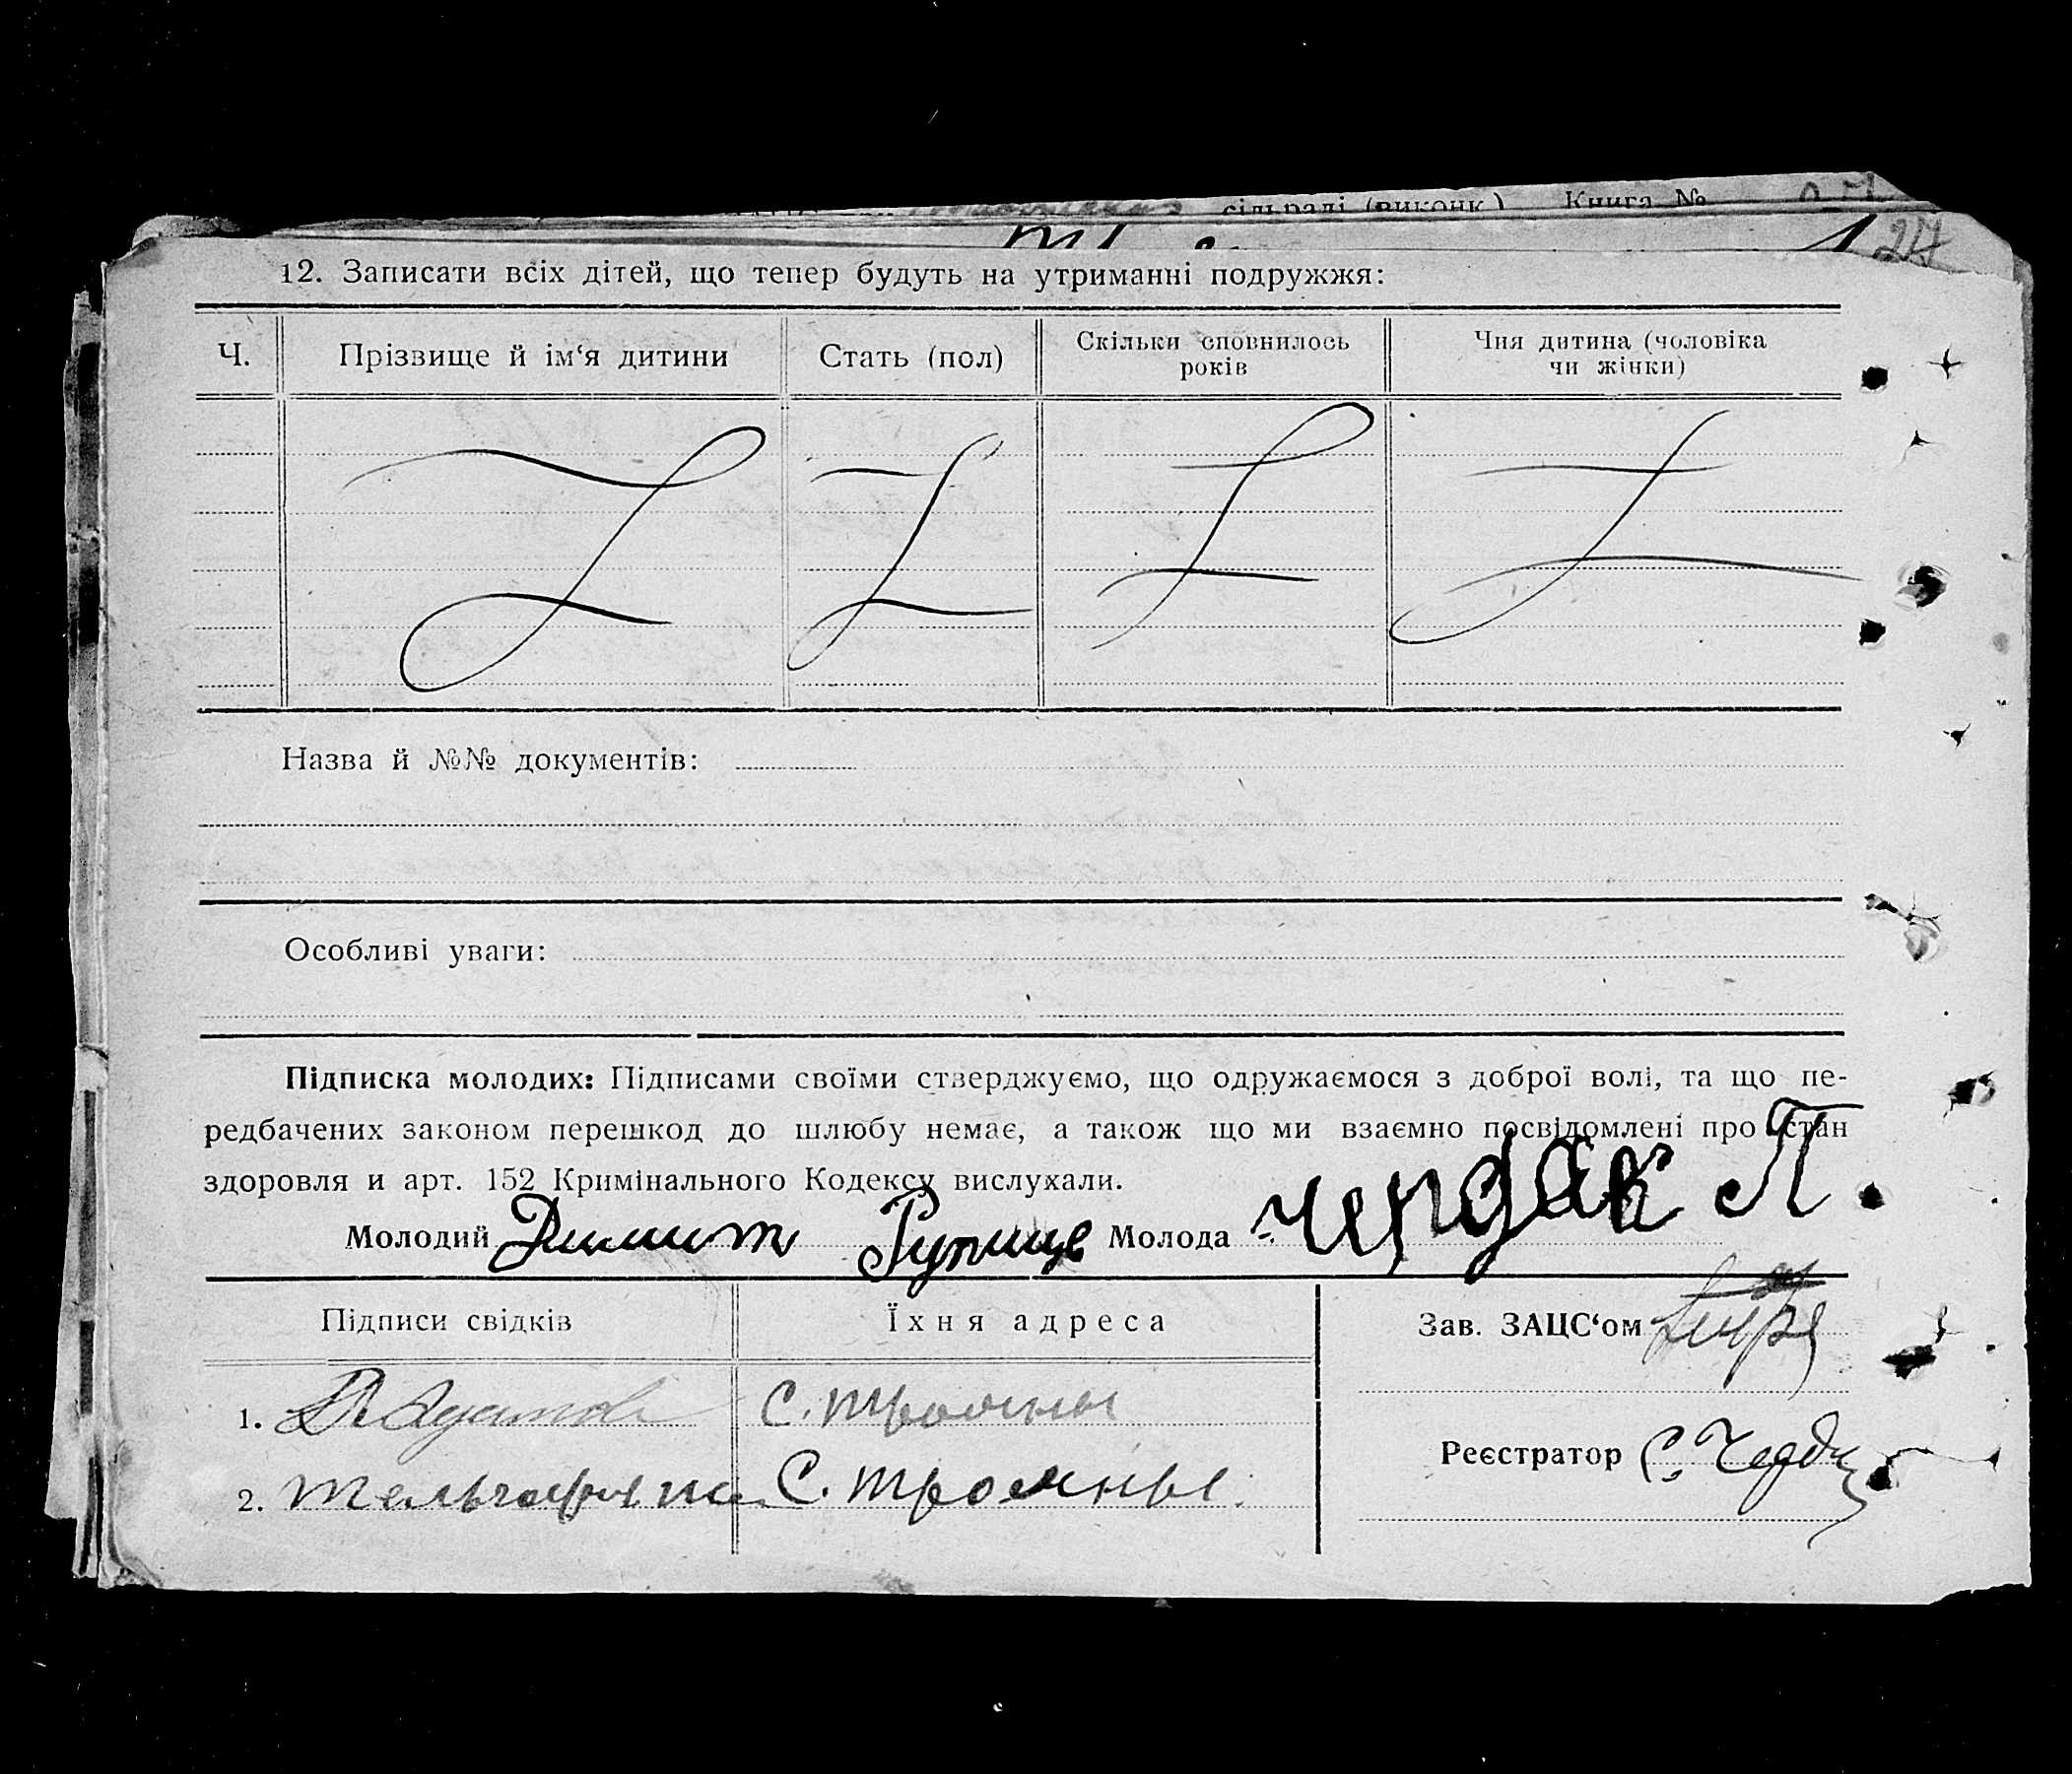 сільраді (виконк.) Книга №
12. Записати всіх дітей, що тепер будуть на утриманні подружжя:
Ч. Прізвище й ім‘я дитини Стать (пол) Скільки сповнилось років Чия дитина (чоловіка чи жінки)
Назва й №№ документів:
Особливі уваги:
Підписка молодих: Підписами своїми стверджуємо, що одружаємося з доброї волі, та що пе-
редбачених законом перешкод до шлюбу немає, а також що ми взаємно посвідомлені про стан
здоровля и арт. 152 Кримінального Кодексу вислухали.
Молодий Димит Молода Чердак П.
Підписи свідків Їхня адреса Зав. ЗАЦС‘ом
1. С. Трояны
Реєстратор С.
2. С. Трояны.